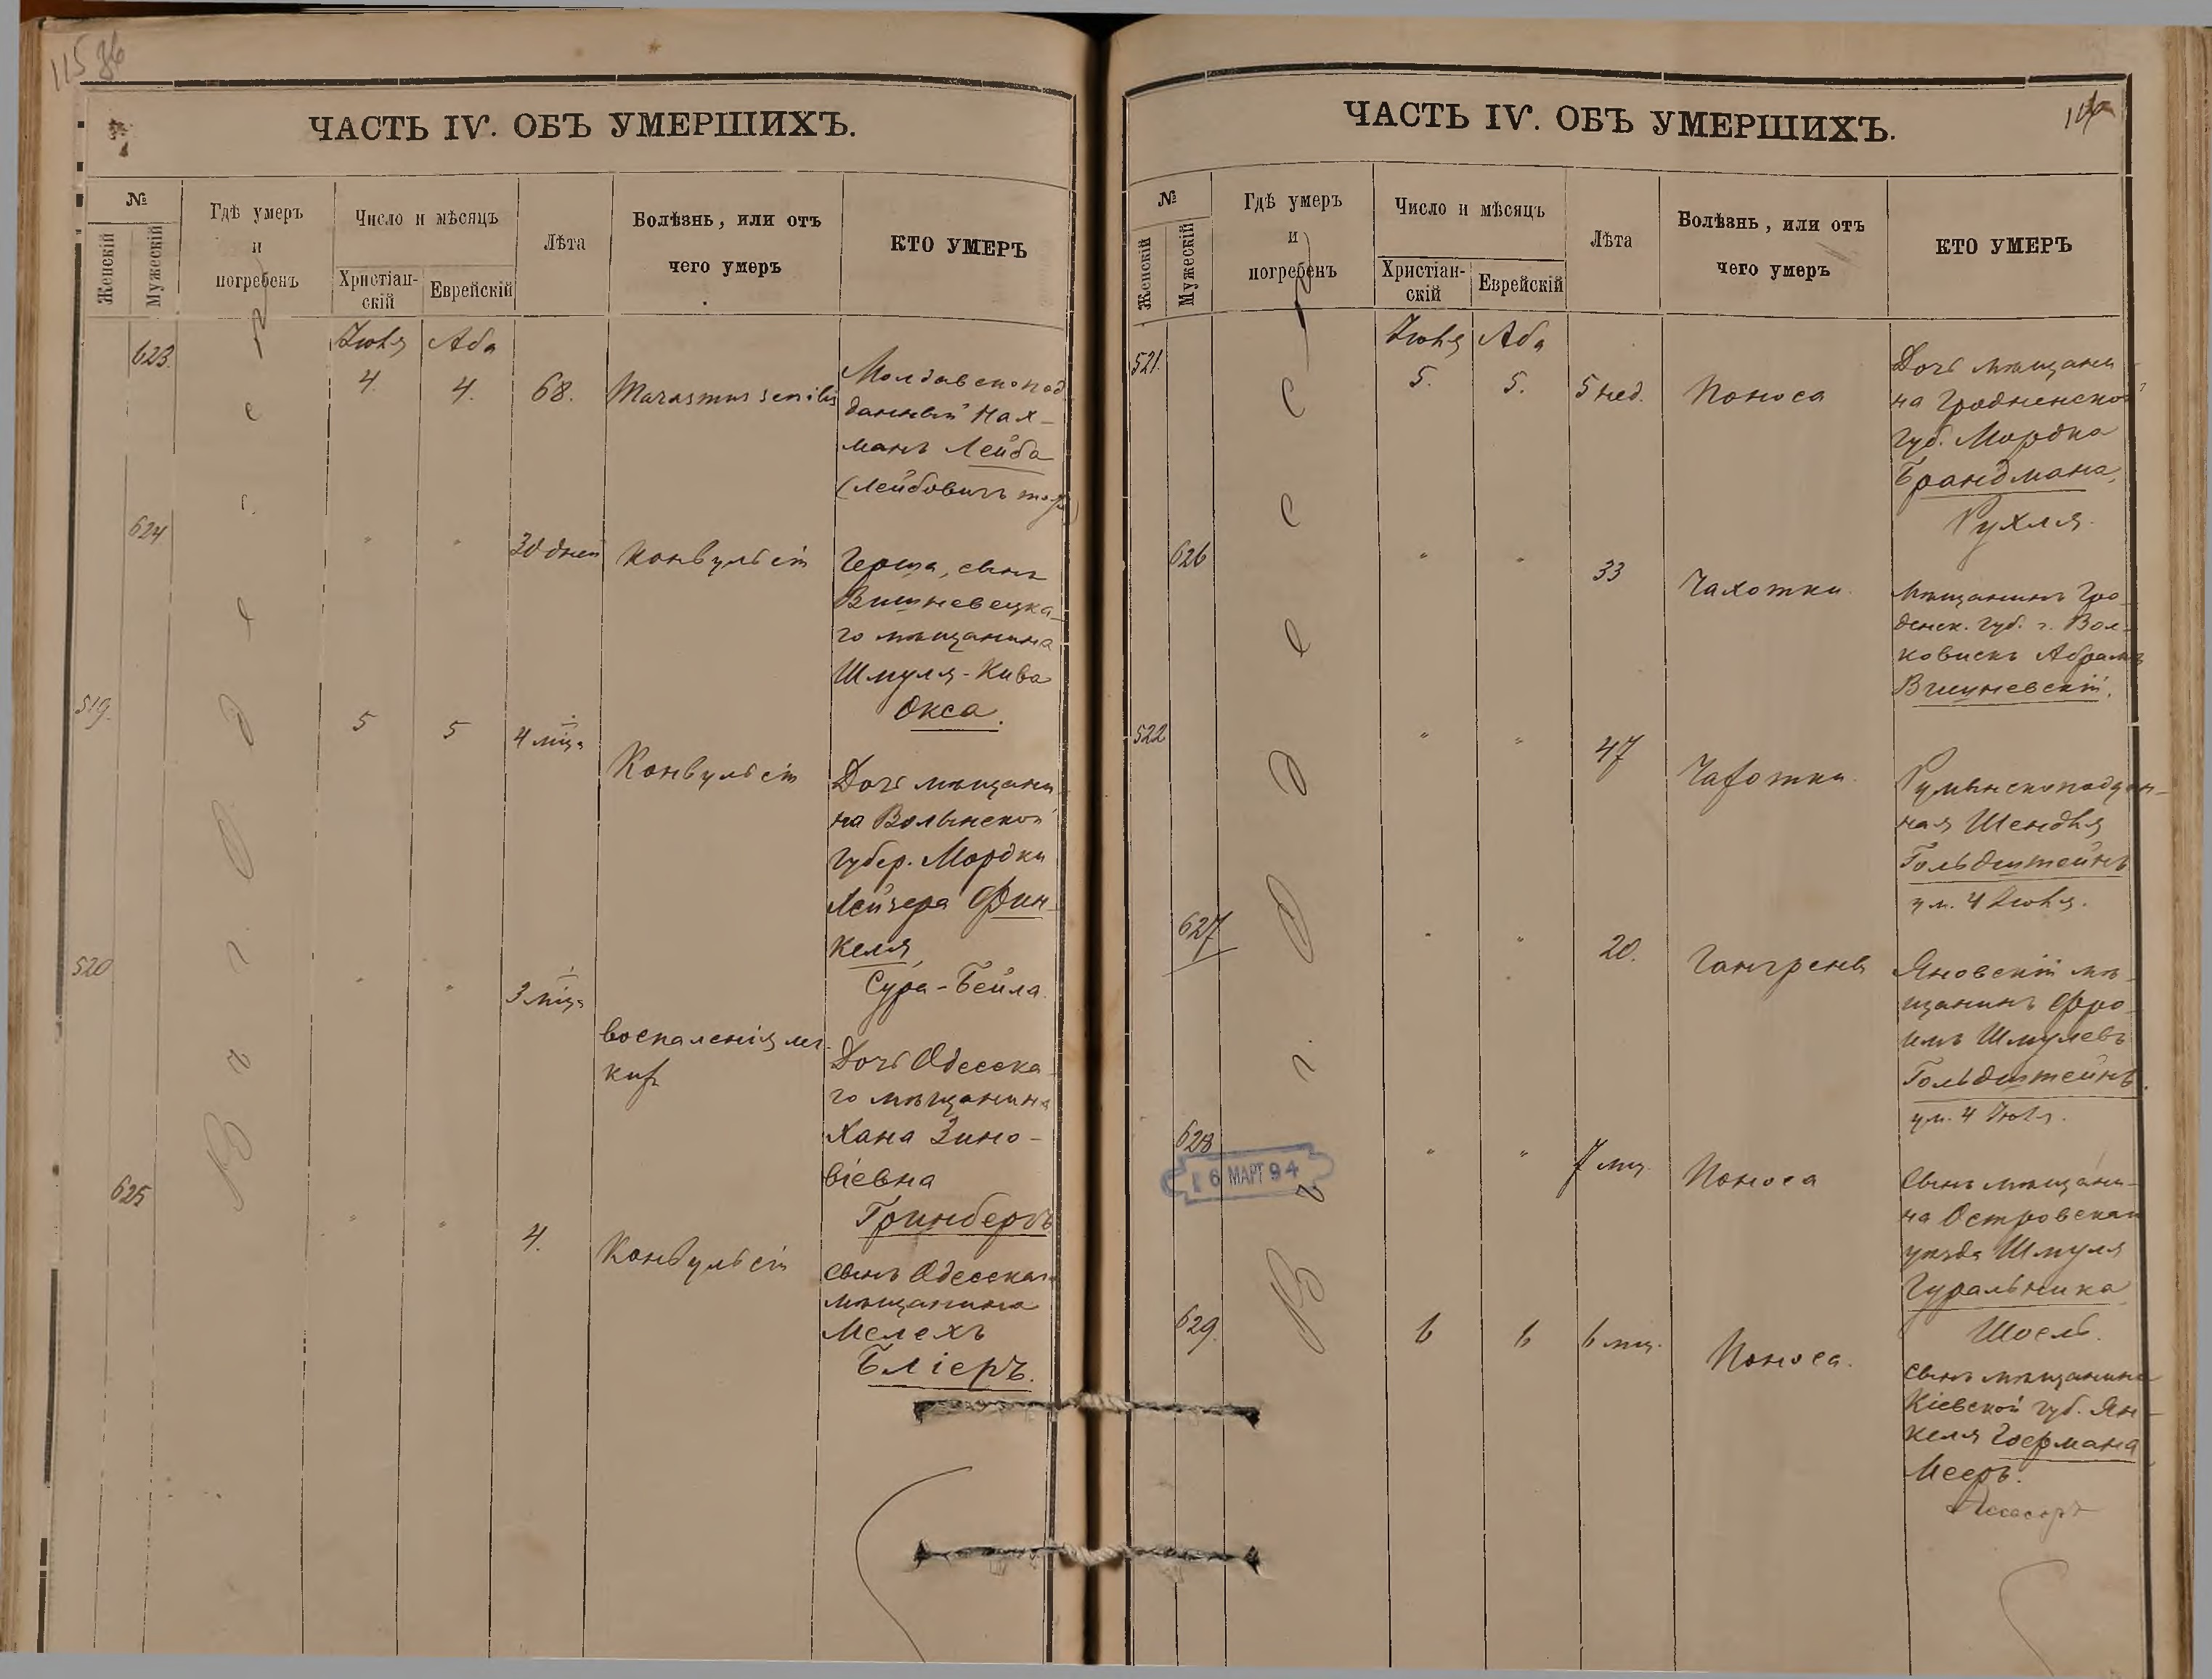 115
ЧАСТЬ IV. ОБЪ УМЕРШИХЪ.
№
Женскій
Мужескій
Гдѣ умеръ
и
погребенъ
Число и мѣсяцъ
Христіан-
скій
Еврейскій
Лѣта
Болѣзнь, или отъ
чего умеръ
КТО УМЕРЪ
Въ г. Одессѣ
Іюля Аба
623.
4. 4. 68. Marasmus senilis
Молдавскопод
данный Нах-
манъ Лейба
(Лейбовичъ тожъ)
624
" " 30 дней Конвульсіи
Герша, сынъ
Вишневецка-
го мѣщанина
Шмуля-Кива
Окса.
519.
5 5 4 мца Конвульсіи
Дочь мѣщани
на Волынской
Губер. Мордки
Лейзера Фин-
келя,
Сура-Бейла.
520
" " 3 мца
воспаленія лег-
кихъ
Дочь Одесска-
го мѣщанина
Хана Зино-
віевна
Гринбергъ
625
" " 4. Конвульсіи
Сынъ Одесскаго
мѣщанина
Мелехъ
Бліеръ.
ЧАСТЬ IV. ОБЪ УМЕРШИХЪ.
№
Женскій
Мужескій
Гдѣ умеръ
и
погребенъ
Число и мѣсяцъ
Христіан-
скій
Еврейскій
Лѣта
Болѣзнь, или отъ
чего умеръ
КТО УМЕРЪ
Въ г. Одессѣ
Іюля Аба
521.
5. 5. 5 нед. Поноса
Дочь мѣщани
на Гродненской
Губ. Мордка
Брандмана,
Рухля.
626
" " 33 Чахотки.
Мѣщанинъ Гро-
денск. Губ. г. Вол-
ковискъ Абрамъ
Вишневскій.
522
" " 47 Чахотки.
Румынскоподдан-
ная Шендля
Гольдштейнъ
ум. 4 Іюля.
627
" " 20. Гангрены
Яновскій мѣ-
щанинъ Фро-
имъ Шмулевъ
Гольдштейнъ.
ум. 4 Іюля.
628
6 МАРТ 94
" " 7 мц. Поноса
Сынъ мѣщани-
на Островскаго
уѣзда Шмуля
Гуральника
Шоель.
629.
6 6 6 мц. Поноса.
Сынъ мѣщанина
Кіевской губ. Ян-
келя Гоермана
Мееръ.